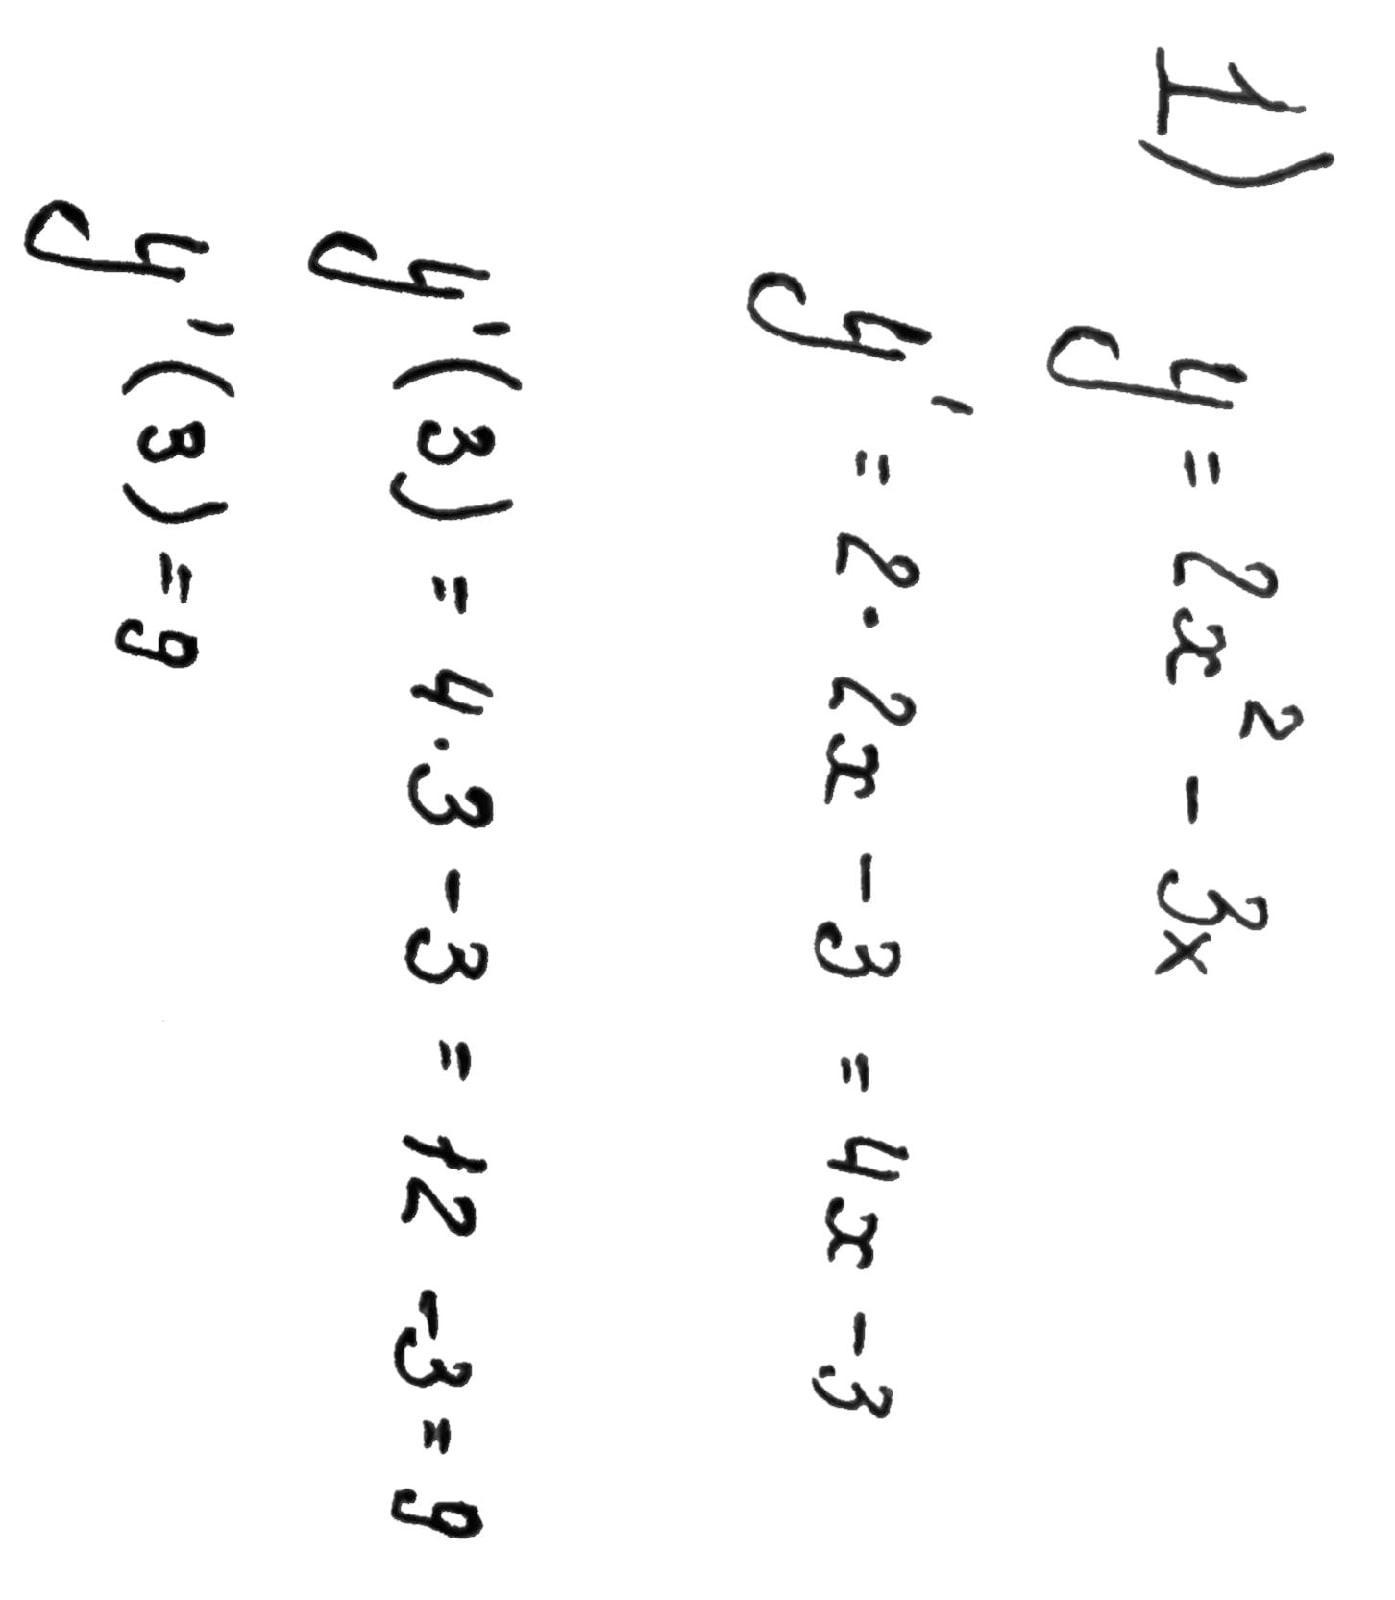 1) y = 2x² - 3x
y' = 2 · 2x - 3 = 4x - 3
y'(3) = 4 · 3 - 3 = 12 - 3 = 9
y'(3) = 9